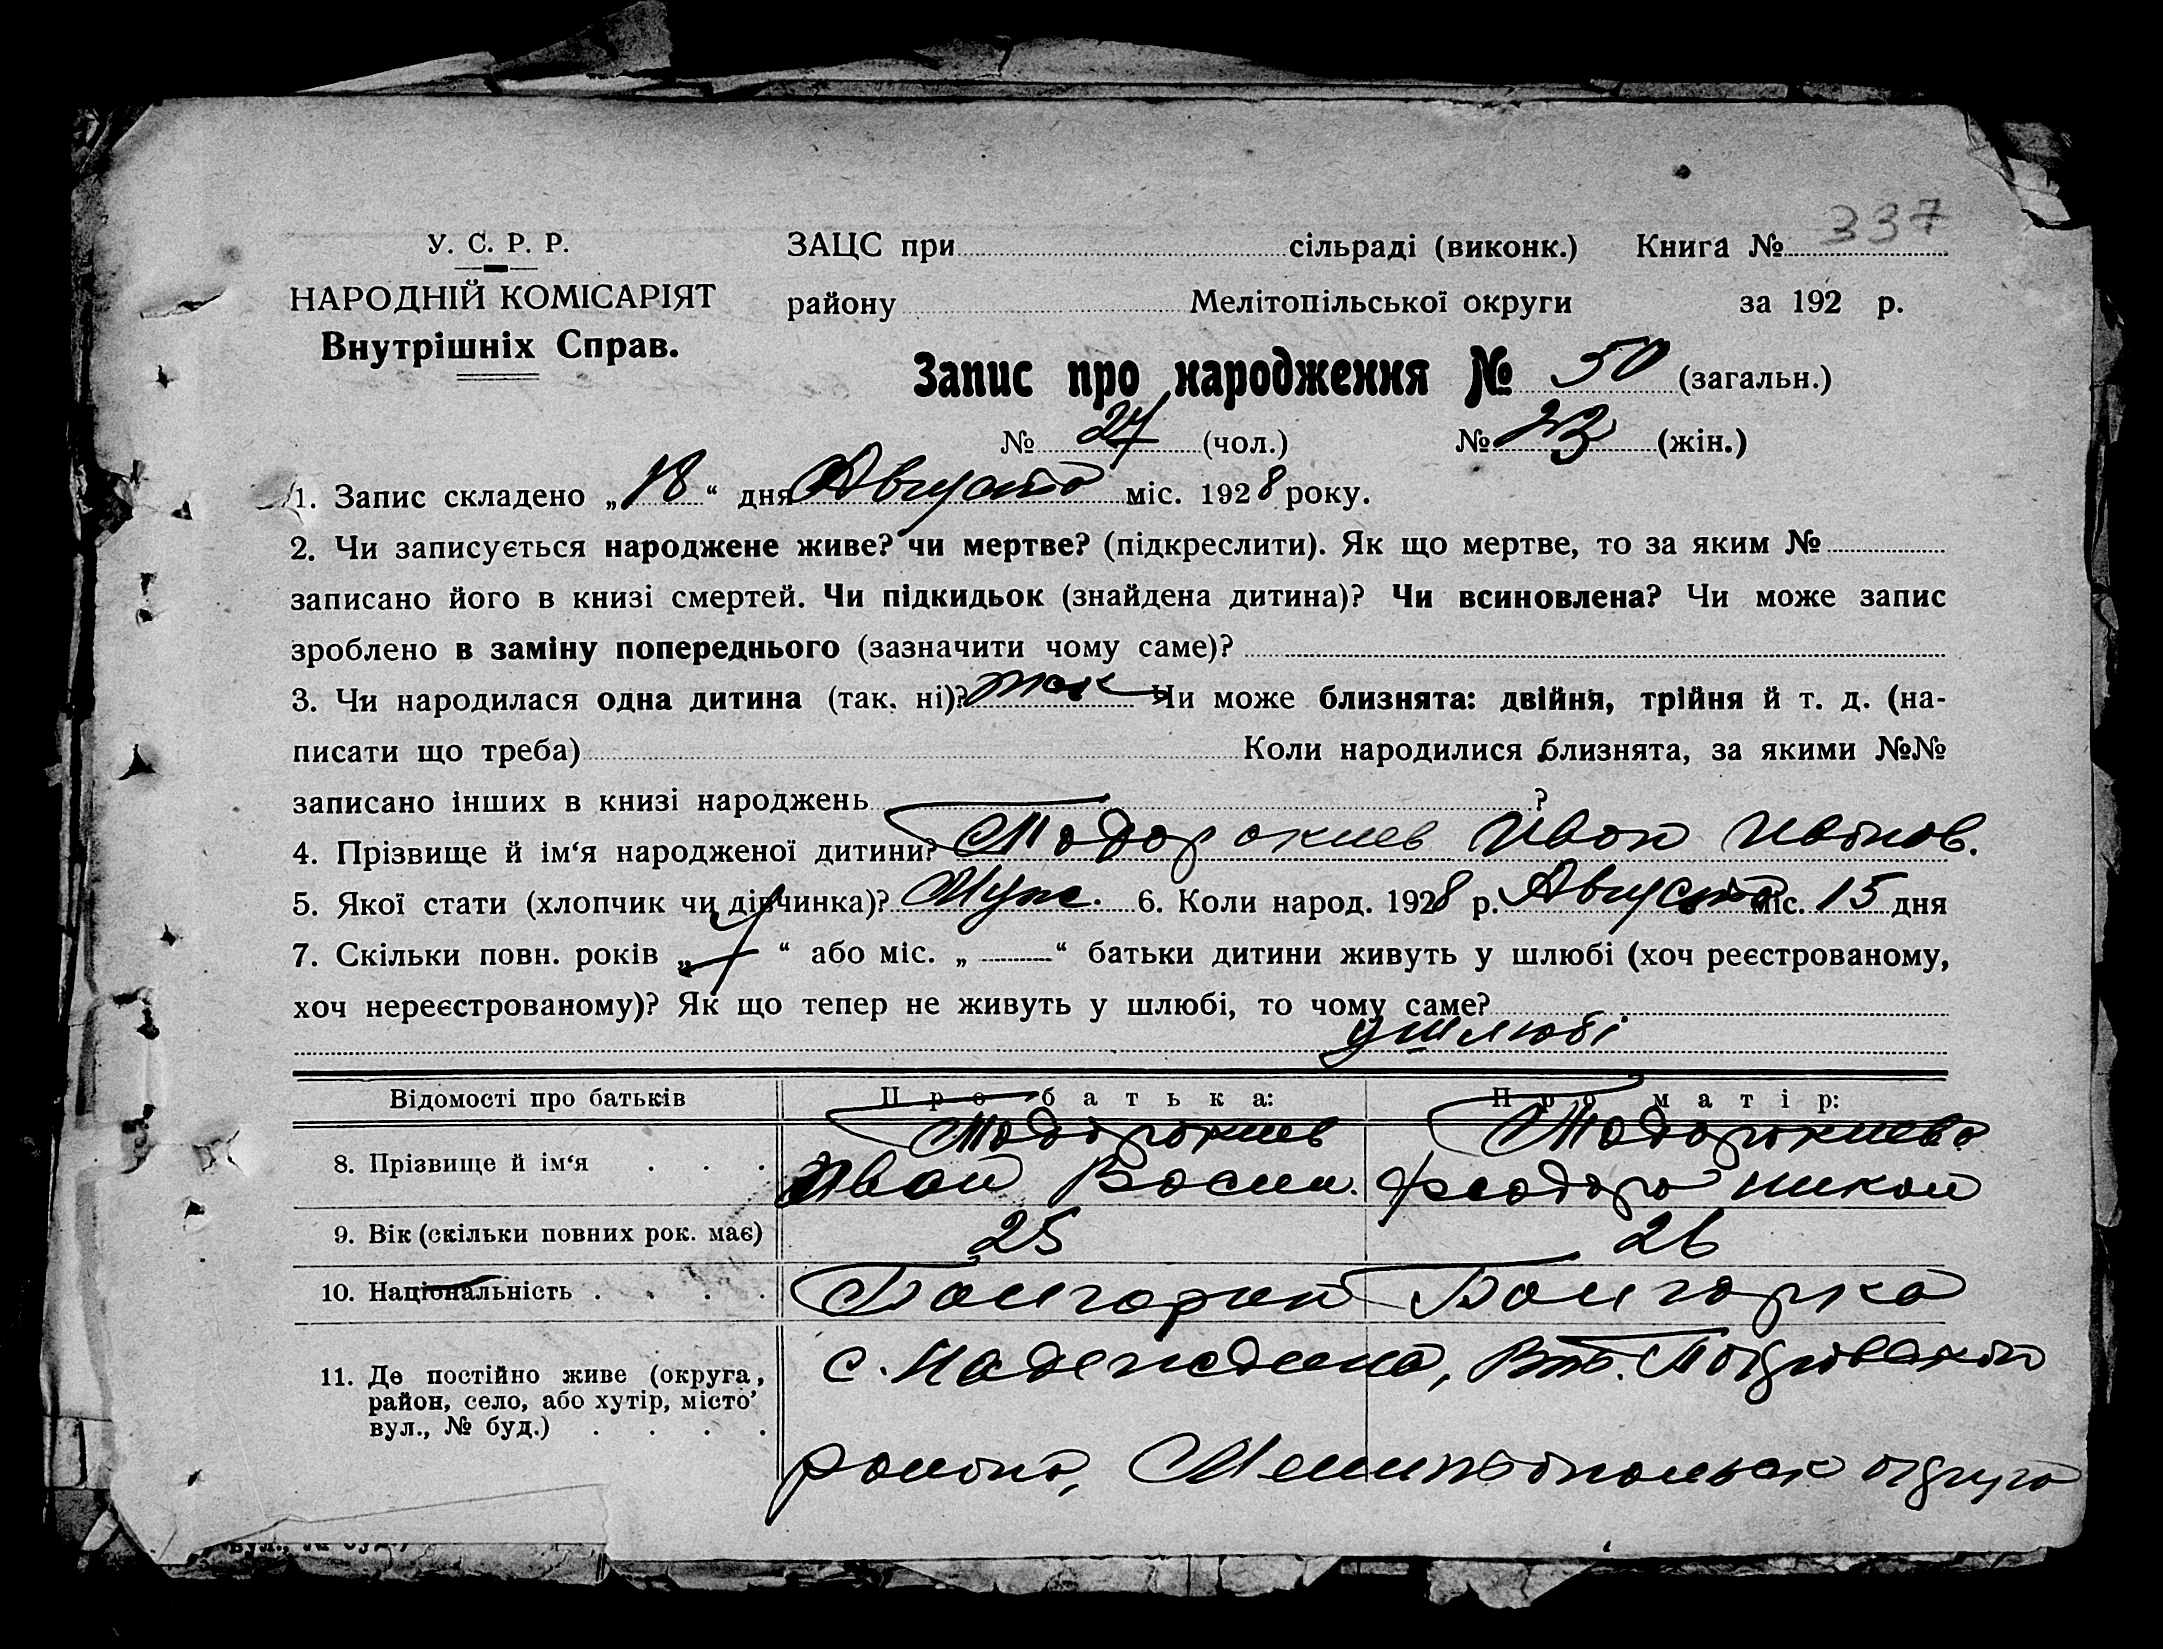 337
У. С. Р. Р.
ЗАЦС при сільраді (виконк.) Книга №
НАРОДНІЙ КОМІСАРІЯТ
району Мелітопільської округи за 192 р.
Внутрішніх Справ.
Запис про народження № 50 (загальн.)
№ 27 (чол.) № 23 (жін.)
1. Запис складено „18“ дня Августа міс. 1928 року.
2. Чи записується народжене живе? чи мертве? (підкреслити). Як що мертве, то за яким №
записано його в книзі смертей. Чи підкидьок (знайдена дитина)? Чи всиновлена? Чи може запис
зроблено в заміну попереднього (зазначити чому саме)?
3. Чи народилася одна дитина (так, ні)? так Чи може близнята: двійня, трійня й т. д. (на-
писати що треба) Коли народилися близнята, за якими №№
записано інших в книзі народжень ?
4. Прізвище й ім‘я народженої дитини? Тодорокиев Иван Иванов.
5. Якої стати (хлопчик чи дівчинка)? Муж. 6. Коли народ. 1928 р. Августа міс. 15 дня
7. Скільки повн. років „ “ або міс. „ — “ батьки дитини живуть у шлюбі (хоч реєстрованому,
хоч нереєстрованому)? Як що тепер не живуть у шлюбі, то чому саме?
у шлюбі
Відомості про батьків Про батька: Про матір:
8. Прізвище й ім‘я Тодорокиев Тодорокиева
Иван Васил. Феодора Никол
9. Вік (скільки повних рок. має) 25 26
10. Національність Болгарин Болгарка
11. Де постійно живе (округа, район, село, або хутір, місто вул., № буд.) с. Надеждина,
района, Мелитопольск округа
вул., № буд.)